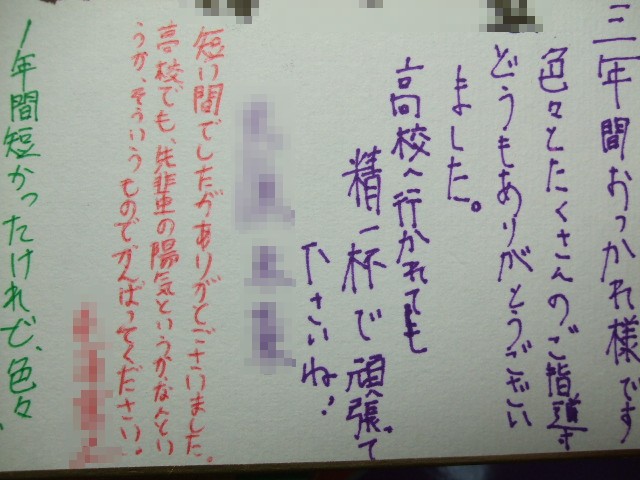 三年間おつかれ様です
色々とたくさんのご指導
どうもありがとうござい
ました。
高校へ行かれても
精一杯で頑張って
下さいね!
短い間でしたがありがとございました。
高校でも、先輩の陽気というかなんとい
うか、そういうものでがんばってください。
1年間短かったけれど、色々